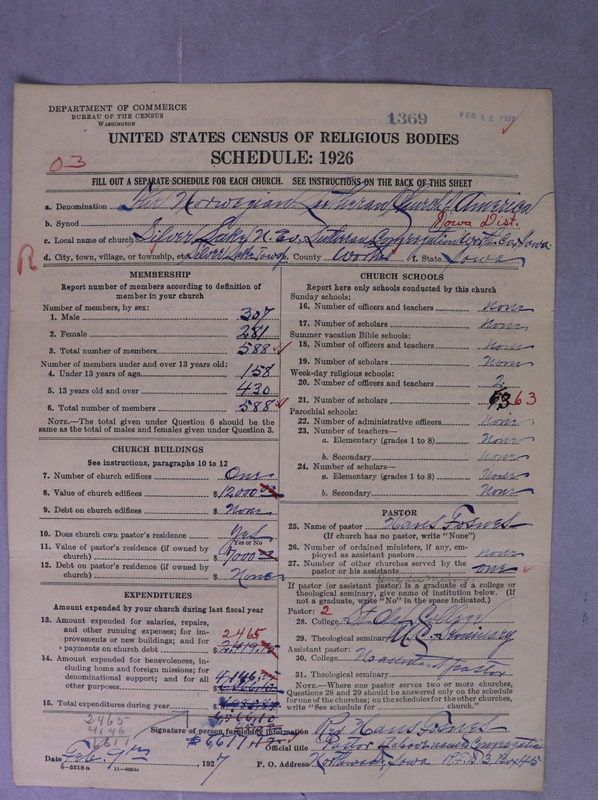 DEPARTMENT OF COMMERCE
BUREAU OF THE CENSUS
WASHINGTON
1369
FEB 12 1927
UNITED STATES CENSUS OF RELIGIOUS BODIES
SCHEDULE: 1926
03
FILL OUT A SEPARATE SCHEDULE FOR EACH CHURCH. SEE INSTRUCTIONS ON THE BACK OF THIS SHEET
a. Denomination The Norwegian Lutheran Church of America
b. Synod Iowa Dist.
c. Local name of church Silver Lake N. Ev. Lutheran Congregation Worth Co, Iowa
R
d. City, town, village, or township, etc. Silver Lake Twsp. County Worth State Iowa
MEMBERSHIP
Report number of members according to definition of member in your church
Number of members, by sex:
1. Male 307
2. Female 281
3. Total number of members 588
Number of members under and over 13 years old:
4. Under 13 years of age 158
5. 13 years old and over 430
6. Total number of members 588
NOTE.—The total given under Question 6 should be the same as the total of males and females given under Question 3.
CHURCH BUILDINGS
See instructions, paragraphs 10 to 12
7. Number of church edifices One
8. Value of church edifices $12000
9. Debt on church edifices $ None
10. Does church own pastor's residence Yes
Yes or No
11. Value of pastor's residence (if owned by church) $7000
12. Debt on pastor's residence (if owned by church) $ None
EXPENDITURES
Amount expended by your church during last fiscal year
13. Amount expended for salaries, repairs, and other running expenses; for improvements or new buildings; and for payments on church debt 2465
14. Amount expended for benevolences, including home and foreign missions; for denominational support; and for all other purposes 4146
15. Total expenditures during year
2465
4146
6611
CHURCH SCHOOLS
Report here only schools conducted by this church
Sunday schools:
16. Number of officers and teachers None
17. Number of scholars None
Summer vacation Bible schools:
18. Number of officers and teachers None
19. Number of scholars None
Week-day religious schools:
20. Number of officers and teachers 2
21. Number of scholars 63
Parochial schools:
22. Number of administrative officers None
23. Number of teachers—
a. Elementary (grades 1 to 8) None
b. Secondary None
24. Number of scholars—
a. Elementary (grades 1 to 8) None
b. Secondary None
PASTOR
25. Name of pastor Hans Fosnes
(If church has no pastor, write "None")
26. Number of ordained ministers, if any, employed as assistant pastors None
27. Number of other churches served by the pastor or his assistants one
If pastor (or assistant pastor) is a graduate of a college or theological seminary, give name of institution below. (If not a graduate, write "No" in the space indicated.)
Pastor: 2
28. College St. Olaf College
29. Theological seminary U. C. Seminary
Assistant pastor:
30. College No assistant pastor
31. Theological seminary
NOTE.—Where one pastor serves two or more churches, Questions 28 and 29 should be answered only on the schedule for one of the churches; on the schedules for the other churches, write "See schedule for church."
Signature of person furnishing information Rev Hans Fosnes
Official title Pastor of above named Congregation
Date Feb. 7th, 1927 P. O. Address Northwood, Iowa R.F.D 3, Box 45
8—5518 a